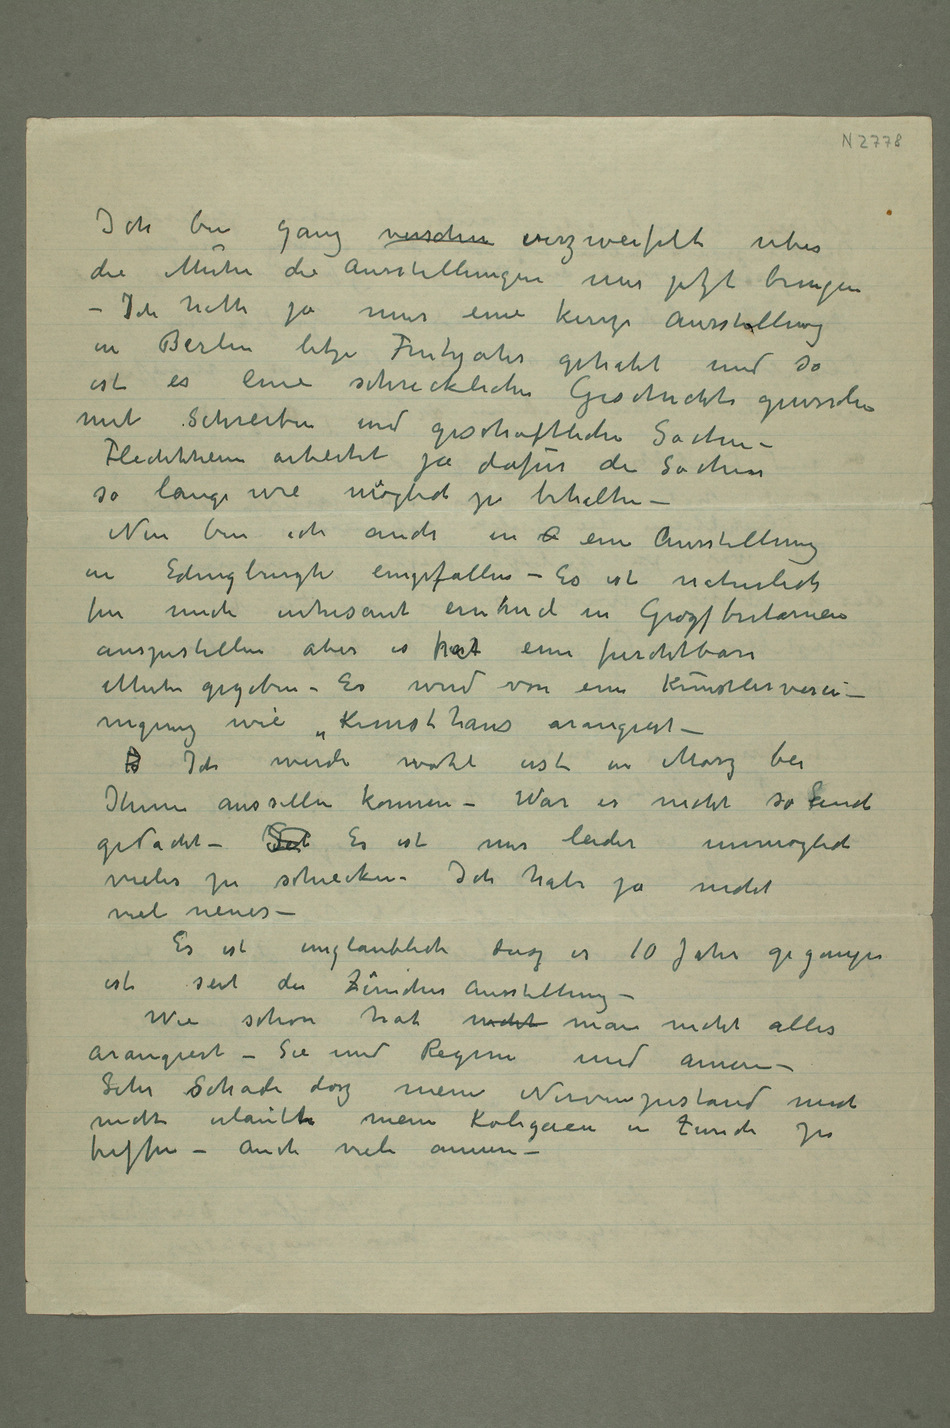 N 2778
Ich bin ganz verschw verzweifelt uber
die Muhe die Ausstellungen mir jetzt bringen
– Ich hatte ja nur eine kurze Ausstellung
in Berlin letze Fruhjahr gehabt und so
ist es eine schreckliche Geschichte geworden
mit Schreiben und geschäftliche Sachen –
Flechtheim arbeitet ja dafür die Sachen
so lange wie möglich zu behalten –
Nun bin ich auch in eine Ausstellung
in Edingburgh eingefallen – Es ist naturlich
fur mich intresant einmal in Grozbritanien
auszustellen aber es hat eine furchtbare
Muhe gegeben – Es wird von eine Künstlerverei–
nigung wie „Kunsthaus arangiert –
Ich werde wohl erst in Marz bei
Ihnen aussellen konnen – War es nicht so
gedacht – Es ist mir leider unmoglich
vieles zu schicken – Ich habe ja nicht
viel neues –
Es ist unglaublich dasz es 10 Jahr gegangen
ist seit die Züricher Ausstellung –
Wie schön hat nicht man nicht alles
arangiert – Sie und Regine und andere –
Sehr Schade dasz meine Nervenzustand mich
nicht erlaubte meine Kolegaen in Zurich zu
treffen – Auch viele andere –